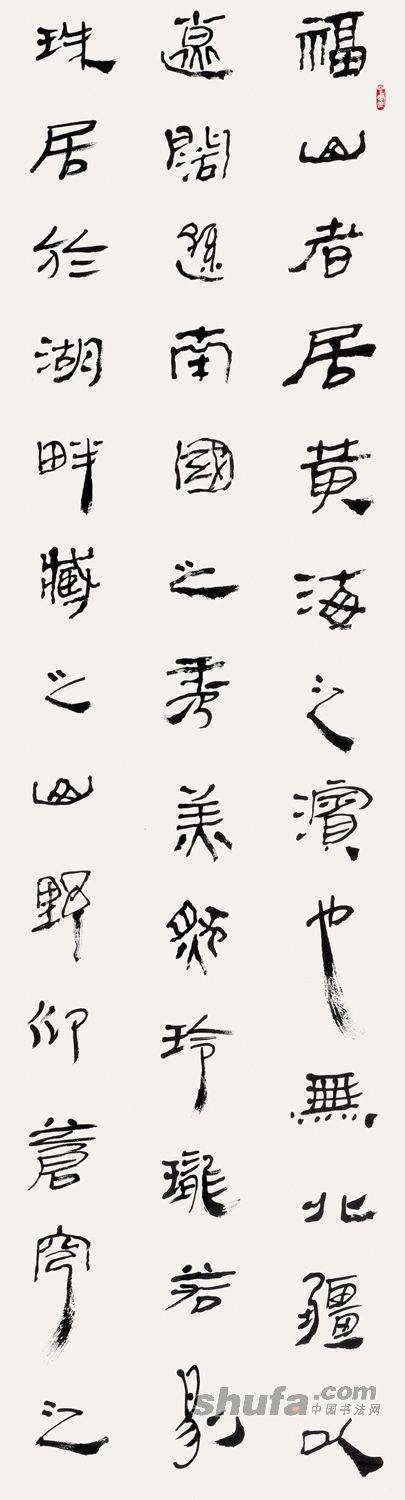 福山者居黃海之濱也無北疆以
遼闊遜南國之秀美玲瓏若剔
珠居於湖畔藏之山野仰蒼穹之
shufa.com
中国书法网